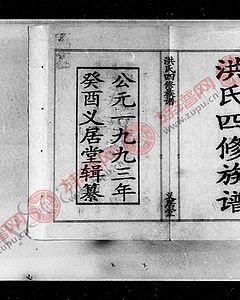 洪氏四修族谱
洪氏四修族谱
义居堂
公元一九九三年
癸酉义居堂辑纂
族谱网
www.zupu.cn